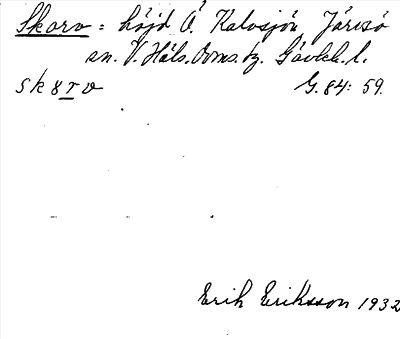 Skorv = höjd Ö. Kalvsjön Järvsö
sn. V. Häls. Doms. tg. Gävleb. l.
skɤrv G. 84: 59.
Erik Eriksson 1932